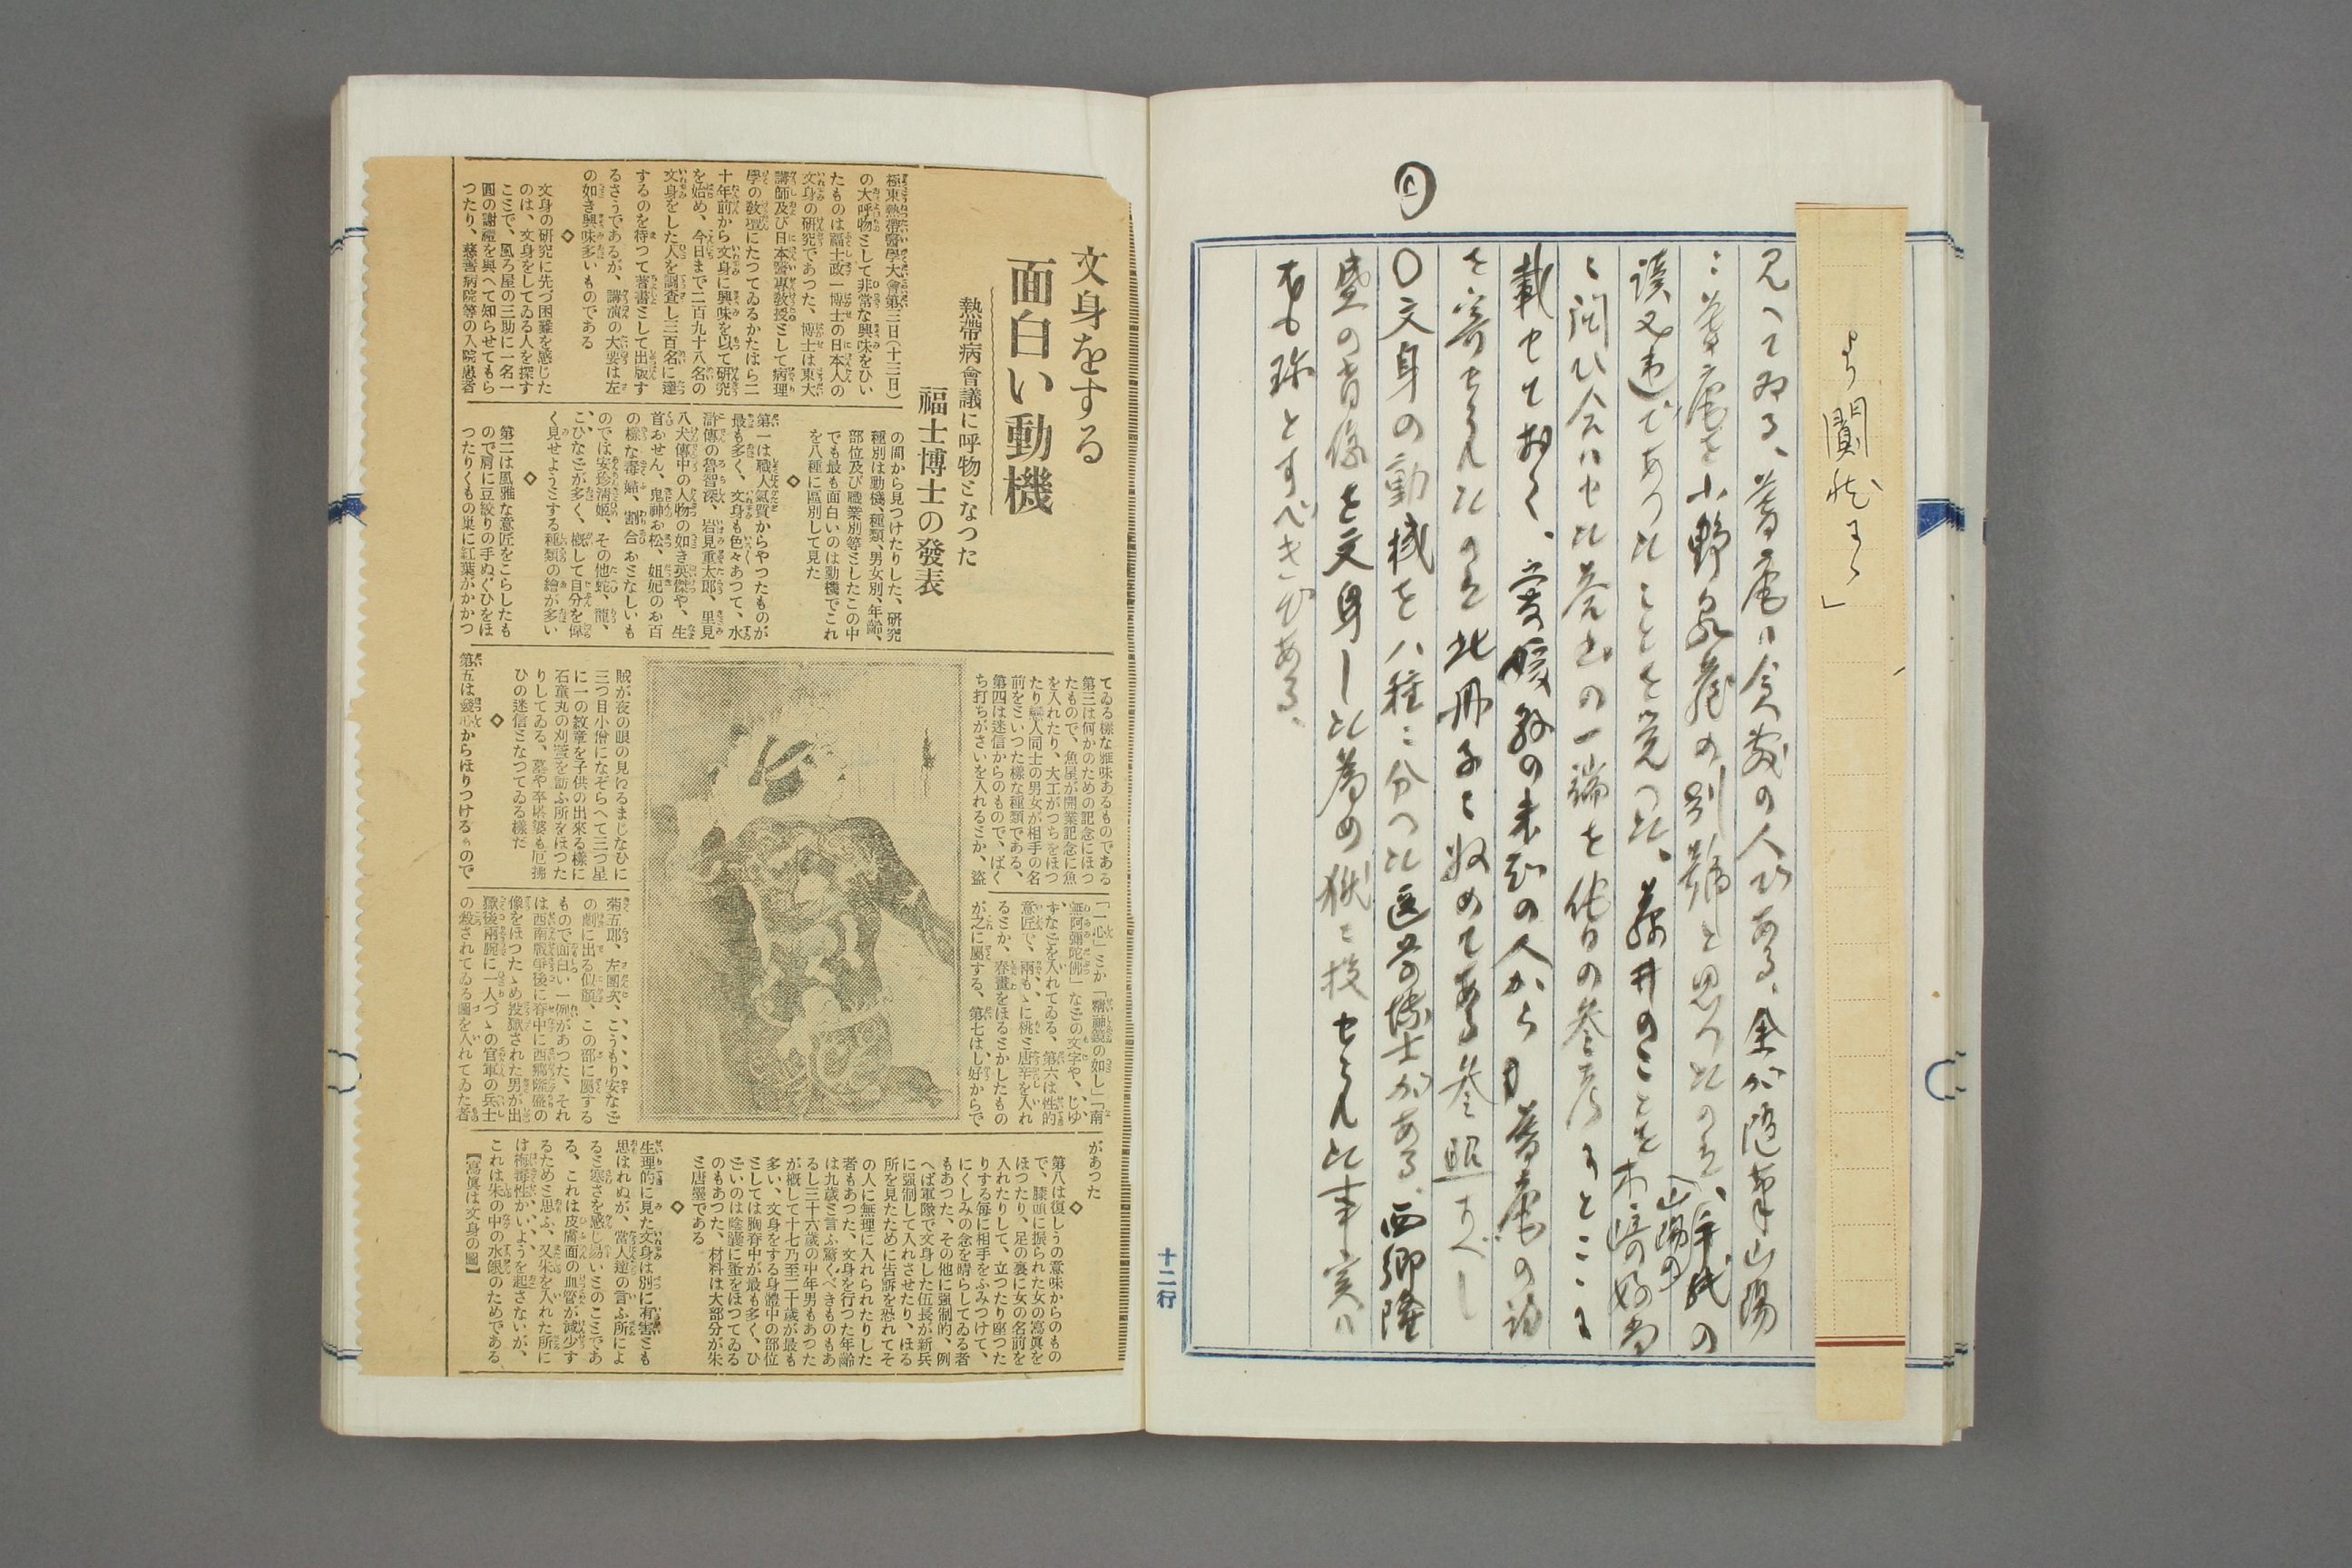 見へてゐる、
の人である、余が随筆山陽
の別号と思つたのは、
誤又違であつたことを覚つた、藤井のことを木崎の好尚
山陽の
ひ合ハせた の一端を他日の参考
載せておく、愛媛縣の未知の人から
を寄せられたのは此冊子に収めてある参照すべし
〇文身の動機を八種ニ分つた医学博士がある、西郷隆
盛の肖像を文身した為め獄に投せられた事実ハ
尤も珍とすべきである、
十二行
文身をする
面白い動機
熱帶病會議に呼物となつた
福士博士の發表
極東熱帶醫學大會第三日(十三日)
の大呼物として非常な興味をひい
たものは福士政一博士の日本人の
文身の研究であつた、博士は東大
講師及び日本醫專教授として病理
學の教壇にたつてゐるかたはら二
十年前から文身に興味を以て研究
を始め、今日まで二百九十八名の
文身をした人を調査し三百名に達
するのを待つて著書として出版す
るさうであるが、講演の大要は左
の如き興味多いものである
◇
文身の研究に先づ困難を感じた
のは、文身をしてゐる人を探す
ことで、風ろ屋の三助に一名一
圓の謝禮を與へて知らせてもら
つたり、慈善病院等の入院患者
の間から見つけたりした、研究
種別は動機、種類、男女別、年齡、
部位及び職業別等としたこの中
でも最も面白いのは動機でこれ
を八種に區別して見た
◇
第一は職人氣質からやつたものが
最も多く、文身も色々あつて、水
滸傳の魯智深、岩見重太郎、里見
八犬傳中の人物の如き英傑や、生
首おせん、鬼神お松、妲妃のお百
の樣な毒婦、割合おとなしいも
のでは安珍清姫、その他蛇、龍、
こひなどが多く、概して自分を偉
く見せようとする種類の繪が多い
◇
第二は風雅な意匠をこらしたも
ので肩に豆絞りの手ぬぐひをほ
つたりくもの巣に紅葉がかかつ
てゐる樣な雅味あるものである
第三は何かのための記念にほつ
たもので、魚屋が開業記念に魚
を入れたり、大工がつちをほつ
たり戀人同士の男女が相手の名
前をといつた樣な種類である、
第四は迷信からのもので、ばく
ち打ちがさいを入れるとか、盜
賊が夜の眼の見ゆるまじなひに
三つ目小僧になぞらへて三つ星
に一の紋章を子供の出來る樣に
石童丸の刈萱を訪ふ所をほつた
りしてゐる、墓や卒塔婆も厄拂
ひの迷信となつてゐる樣だ
◇
第五は發心からほりつけるもので
「一心」とか「精神鏡の如し」「南
無阿彌陀佛」などの文字や、じゆ
すなどを入れてゐる、第六は性的
意匠で、兩もゝに桃と唐辛を入れ
るとか、春畫をほるとかしたもの
が之に屬する、第七はし好からで
菊五郎、左團次、こうもり安など
の劇に出る似顏、この部に屬する
もので面白い一例があつた、それ
は西南戰爭後に脊中に西郷隆盛の
像をほつたゝめ投獄された男が出
獄後兩腕に一人づゝの官軍の兵士
の殺されてゐる圖を入れてゐた者
があつた
◇
第八は復しうの意味からのもの
で、膝頭に振られた女の寫眞を
ほつたり、足の裏に女の名前を
入れたりして、立つたり座つた
りする毎に相手をふみつけて、
にくしみの念を晴らしてゐる者
もあつた、その他に強制的、例
へば軍隊で文身した伍長が新兵
に強制して入れさせたり、ほる
所を見たために告訴を恐れてそ
の人に無理に入れられたりした
者もあつた、文身を行つた年齡
は九歳と言ふ驚くべきものもあ
るし三十六歳の中年男もあつた
が概して十七乃至二十歳が最も
多い、文身をする身體中の部位
としては胸脊中が最も多く、ひ
どいのは陰嚢に蛋をほつてゐる
のもあつた、材料は大部分が朱
と唐墨である
◇
生理的に見た文身は別に有害とも
思はれぬが、當人達の言ふ所によ
ると寒さを感じ易いとのことであ
る、これは皮膚面の血管が減少す
るためと思ふ、又朱を入れた所に
は梅毒性かいようを起さないが、
これは朱の中の水銀のためである
【寫眞は文身の圖】